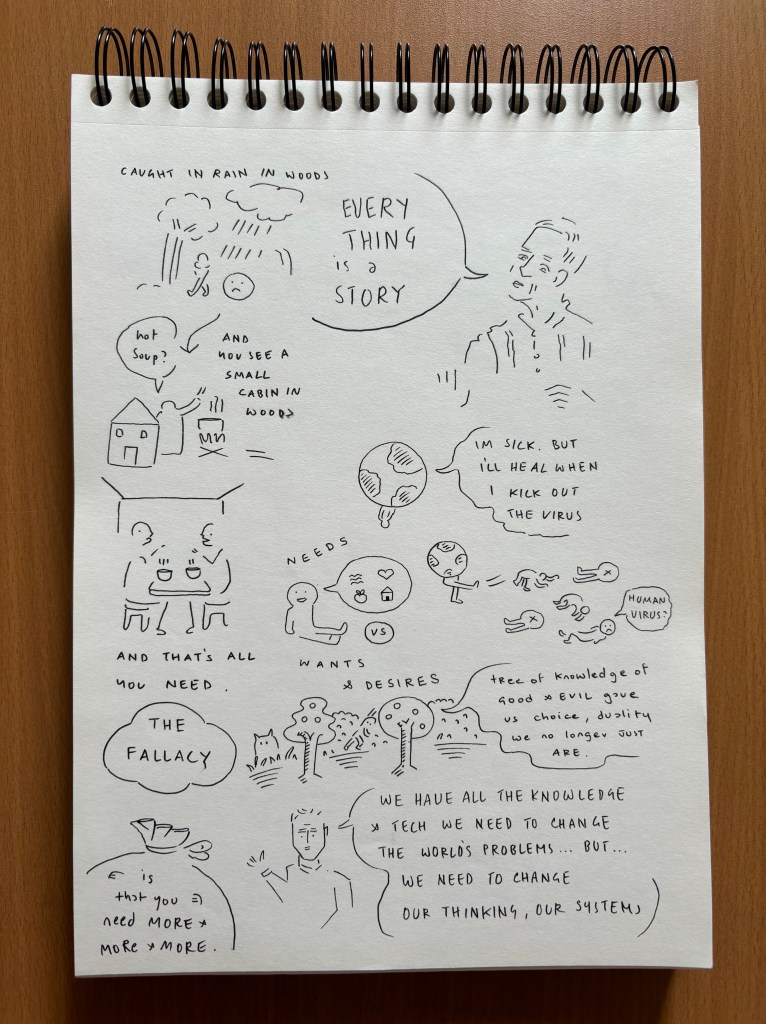 CAUGHT IN RAIN IN WOODS
EVERY
THING
is a
STORY
hot
soup?
AND
YOU SEE A
SMALL
CABIN IN
WOODS
IM SICK. BUT
I'LL HEAL WHEN
I KICK OUT
THE VIRUS
NEEDS
VS
HUMAN
VIRUS?
AND THAT'S ALL
YOU NEED.
WANTS
& DESIRES
tree of knowledge of
GOOD & EVIL gave
us choice, duality
we no longer JUST
ARE.
THE
FALLACY
is
that you
need MORE &
MORE & MORE.
WE HAVE ALL THE KNOWLEDGE
& TECH WE NEED TO CHANGE
THE WORLD'S PROBLEMS... BUT...
WE NEED TO CHANGE
OUR THINKING, OUR SYSTEMS